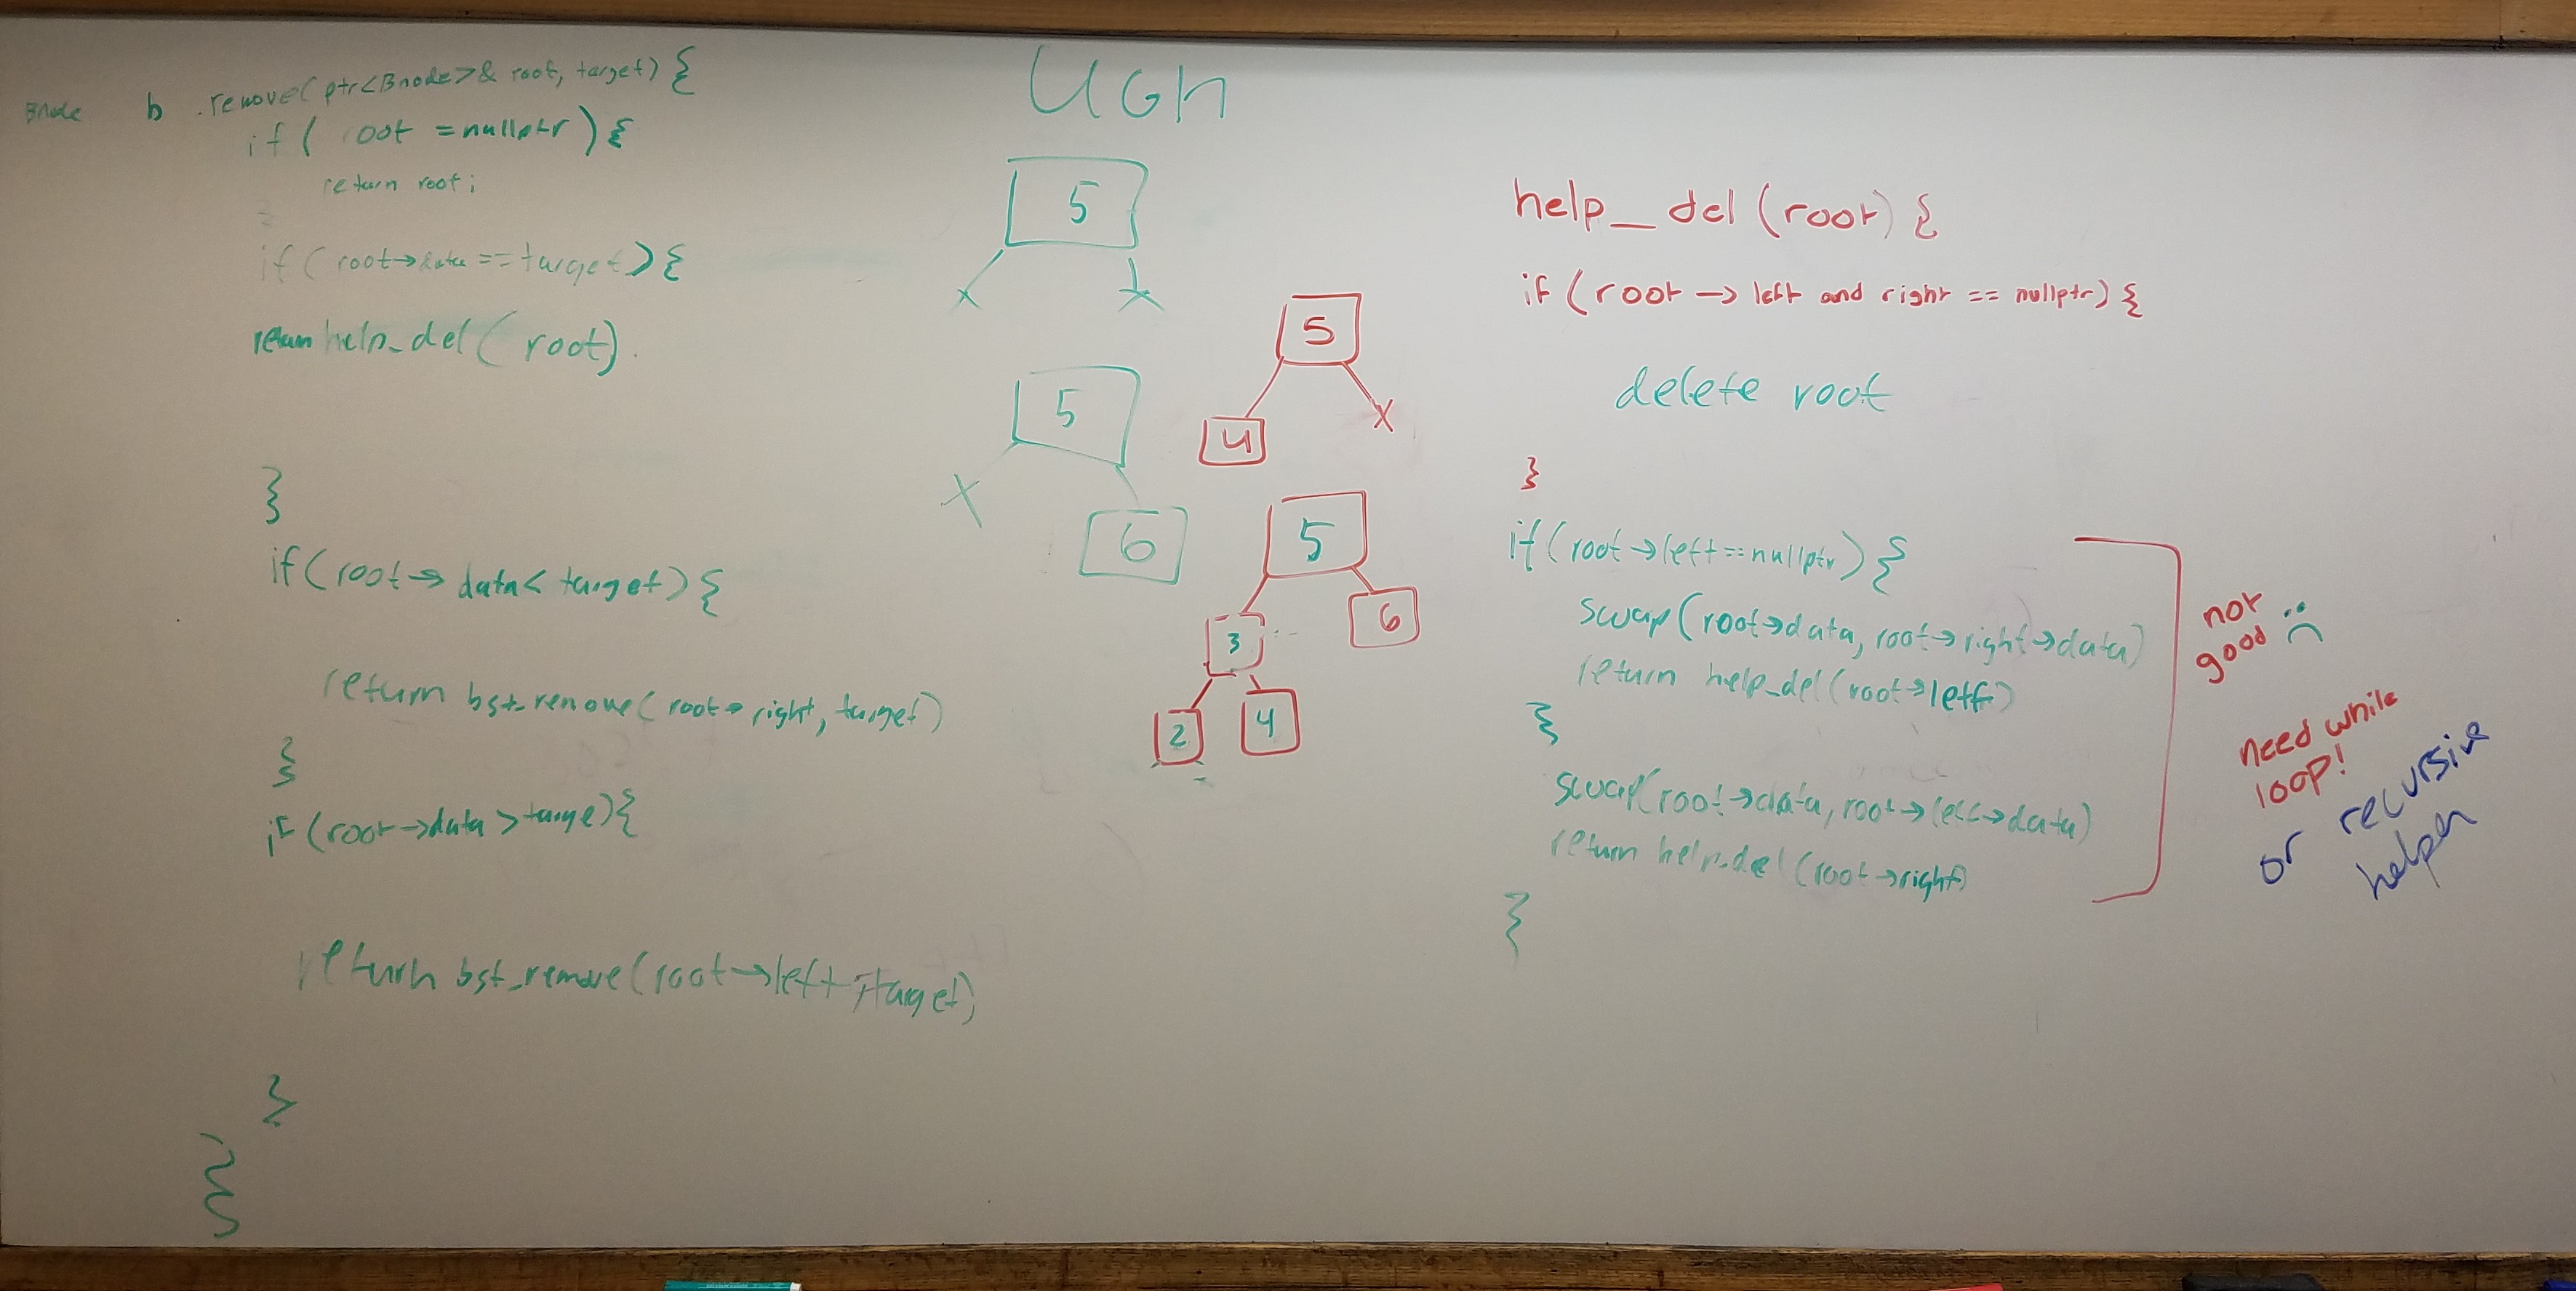 UGh
Bnode b .remove(ptr<Bnode>& root, target) {
if ( oot = nullptr ) {
return root;
}
if ( root→data == target ) {
return help_del( root).
}
if (root→ data < target) {
return bst_remove( root→ right, target)
}
if (root→data > targe) {
return bst_remove(root→left, target)
}
}
5
x x
5
X
6
5
4
X
5
3
6
2
4
help_del (root) {
if (root → left and right == nullptr) {
delete root
}
if (root→left == nullptr) {
swap(root→data, root→right→data)
return help_del(root→left)
}
swap(root→data, root→left→data)
return help_del (root→right)
}
not
good :(
need while
loop!
or recursive
helper